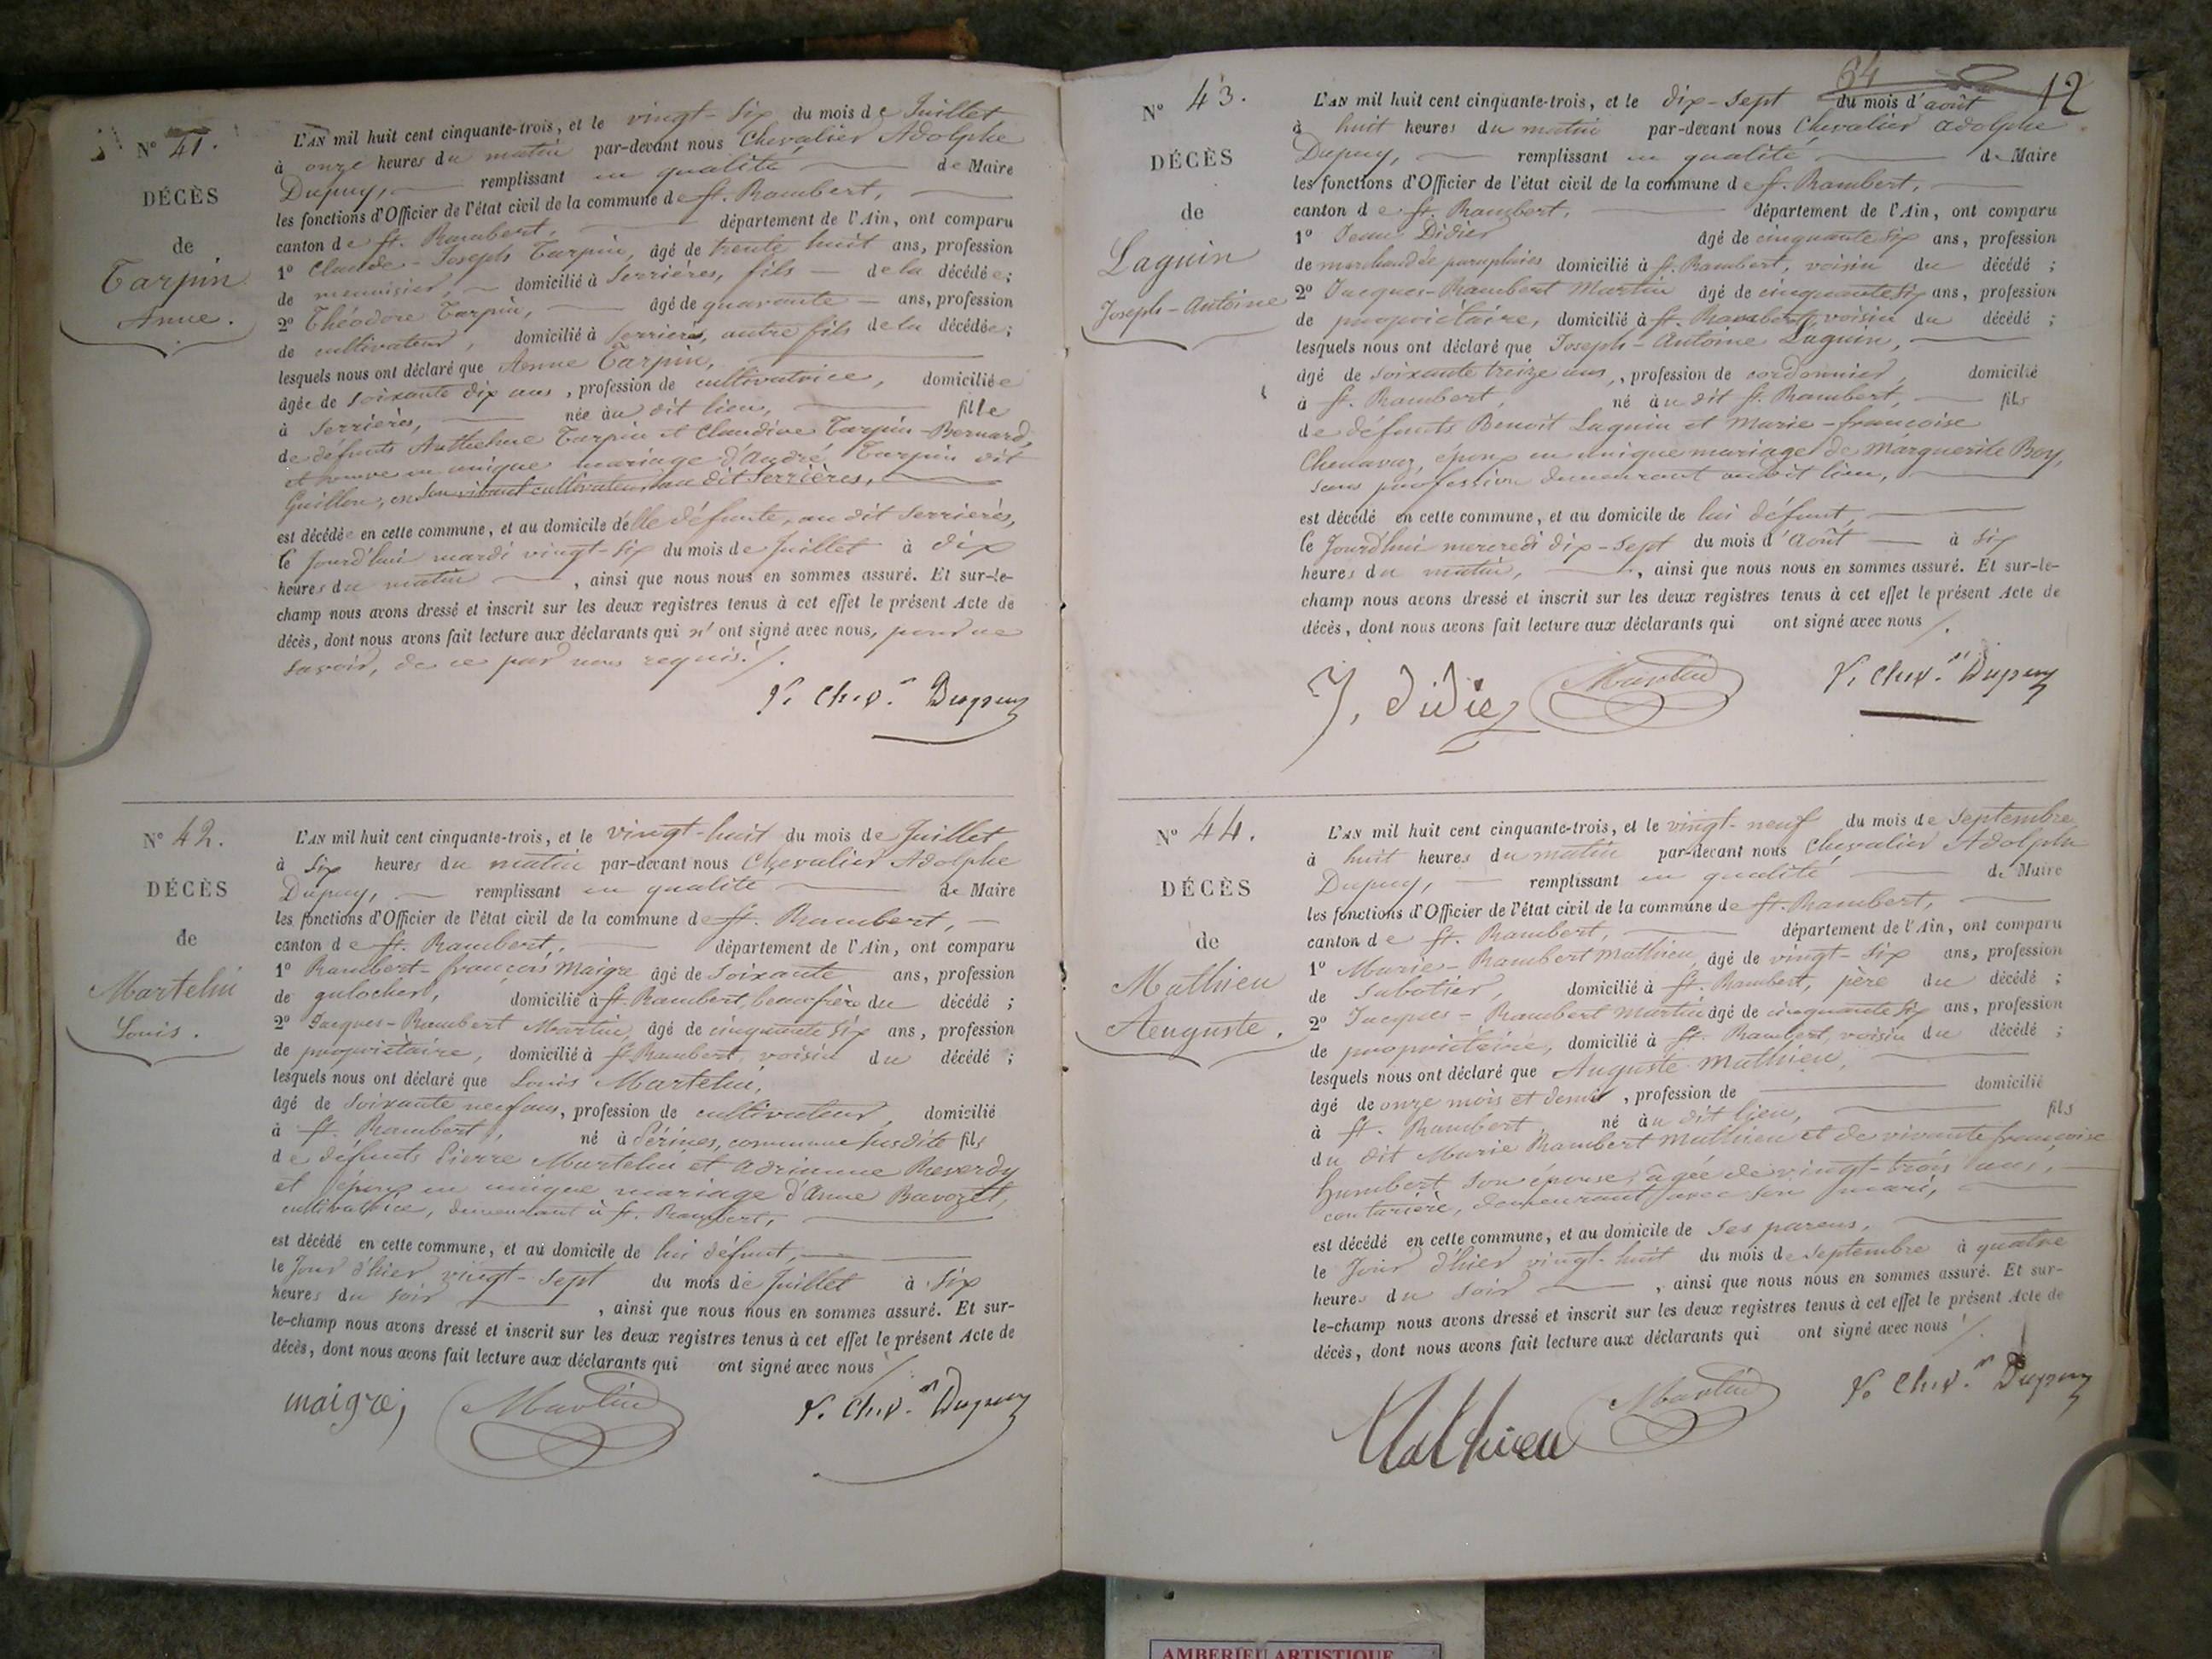 N° 41.
DÉCÈS
de
Tarpin
Anne.
L'AN mil huit cent cinquante-trois, et le vingt-six du mois de Juillet
à onze heures du matin par-devant nous Chevalier Adolphe
Dupuy, remplissant en qualité de Maire
les fonctions d'Officier de l'état civil de la commune de St. Rambert,
canton de St. Rambert, département de l'Ain, ont comparu
1° Claude-Joseph Tarpin, âgé de trente huit ans, profession
de menuisier, domicilié à Serrières, fils de la décédée;
2° Théodore Tarpin, âgé de quarante ans, profession
de cultivateur, domicilié à Serrières, autre fils de la décédée;
lesquels nous ont déclaré que Anne Tarpin,
âgée de soixante dix ans, profession de cultivatrice, domiciliée
à Serrières, née au dit lieu, fille
de défunts Anthelme Tarpin et Claudine Tarpin-Bernard,
et veuve en unique mariage d'André Tarpin dit
Guillon, en son vivant cultivateur au dit Serrières,
est décédée en cette commune, et au domicile d'elle défunte, au dit Serrières,
ce jourd'hui mardi vingt-six du mois de Juillet à dix
heures du matin, ainsi que nous nous en sommes assuré. Et sur-le-
champ nous avons dressé et inscrit sur les deux registres tenus à cet effet le présent Acte de
décès, dont nous avons fait lecture aux déclarants qui n'ont signé avec nous, pour ne
savoir, de ce par nous requis./.
Chev.r Dupuy
N° 42.
DÉCÈS
de
Martelin
Louis.
L'AN mil huit cent cinquante-trois, et le vingt-huit du mois de Juillet
à six heures du matin par-devant nous Chevalier Adolphe
Dupuy, remplissant en qualité de Maire
les fonctions d'Officier de l'état civil de la commune de St. Rambert,
canton de St. Rambert, département de l'Ain, ont comparu
1° Rambert-françois Maigre âgé de soixante ans, profession
de galocher, domicilié à St. Rambert, beau frère du décédé;
2° Jacques-Rambert Martin, âgé de cinquante six ans, profession
de propriétaire, domicilié à St. Rambert, voisin du décédé;
lesquels nous ont déclaré que Louis Martelin,
âgé de soixante neuf ans, profession de cultivateur, domicilié
à St. Rambert, né à Sérines, commune susdite fils
de défunts Pierre Martelin et Adrianne Reverdy
et époux en unique mariage d'Anne Bavozet,
cultivatrice, demeurant à St. Rambert,
est décédé en cette commune, et au domicile de lui défunt,
le jour d'hier vingt-sept du mois de Juillet à six
heures du soir, ainsi que nous nous en sommes assuré. Et sur-
le-champ nous avons dressé et inscrit sur les deux registres tenus à cet effet le présent Acte de
décès, dont nous avons fait lecture aux déclarants qui ont signé avec nous ./.
maigre, Martin Chev.r Dupuy
64 12
N° 43.
DÉCÈS
de
Laguin
Joseph-Antoine
L'AN mil huit cent cinquante-trois, et le dix-sept du mois d'août
à huit heures du matin par-devant nous Chevalier Adolphe
Dupuy, remplissant en qualité de Maire
les fonctions d'Officier de l'état civil de la commune de St. Rambert,
canton de St. Rambert, département de l'Ain, ont comparu
1° Jean Didier âgé de cinquante six ans, profession
de marchand de parapluies domicilié à St. Rambert, voisin du décédé;
2° Jacques-Rambert Martin âgé de cinquante six ans, profession
de propriétaire, domicilié à St. Rambert, voisin du décédé;
lesquels nous ont déclaré que Joseph-Antoine Laguin,
âgé de soixante treize ans, profession de cordonnier, domicilié
à St. Rambert, né au dit St. Rambert, fils
de défunts Benoit Laguin et Marie-françoise
Chenavaz, époux en unique mariage de Marguerite Boy,
sans profession demeurant au dit lieu,
est décédé en cette commune, et au domicile de lui défunt,
ce jourd'hui mercredi dix-sept du mois d'Août à six
heures du matin, ainsi que nous nous en sommes assuré. Et sur-le-
champ nous avons dressé et inscrit sur les deux registres tenus à cet effet le présent Acte de
décès, dont nous avons fait lecture aux déclarants qui ont signé avec nous /.
J. Didier Martin Chev.r Dupuy
N° 44.
DÉCÈS
de
Mathieu
Auguste.
L'AN mil huit cent cinquante-trois, et le vingt-neuf du mois de Septembre
à huit heures du matin par-devant nous Chevalier Adolphe
Dupuy, remplissant en qualité de Maire
les fonctions d'Officier de l'état civil de la commune de St. Rambert,
canton de St. Rambert, département de l'Ain, ont comparu
1° Marie-Rambert Mathieu, âgé de vingt-six ans, profession
de sabotier, domicilié à St. Rambert, père du décédé;
2° Jacques-Rambert Martin âgé de cinquante six ans, profession
de propriétaire, domicilié à St. Rambert, voisin du décédé;
lesquels nous ont déclaré que Auguste Mathieu,
âgé de onze mois et demi, profession de domicilié
à St. Rambert, né au dit lieu, fils
du dit Marie Rambert Mathieu et de vivante françoise
Humbert son épouse, âgée de vingt-trois ans,
couturière, demeurant avec son mari,
est décédé en cette commune, et au domicile de ses parens,
le jour d'hier vingt-huit du mois de Septembre à quatre
heures du soir, ainsi que nous nous en sommes assuré. Et sur-
le-champ nous avons dressé et inscrit sur les deux registres tenus à cet effet le présent Acte de
décès, dont nous avons fait lecture aux déclarants qui ont signé avec nous /.
Mathieu Martin Chev.r Dupuy
AMBERIEU ARTISTIQUE